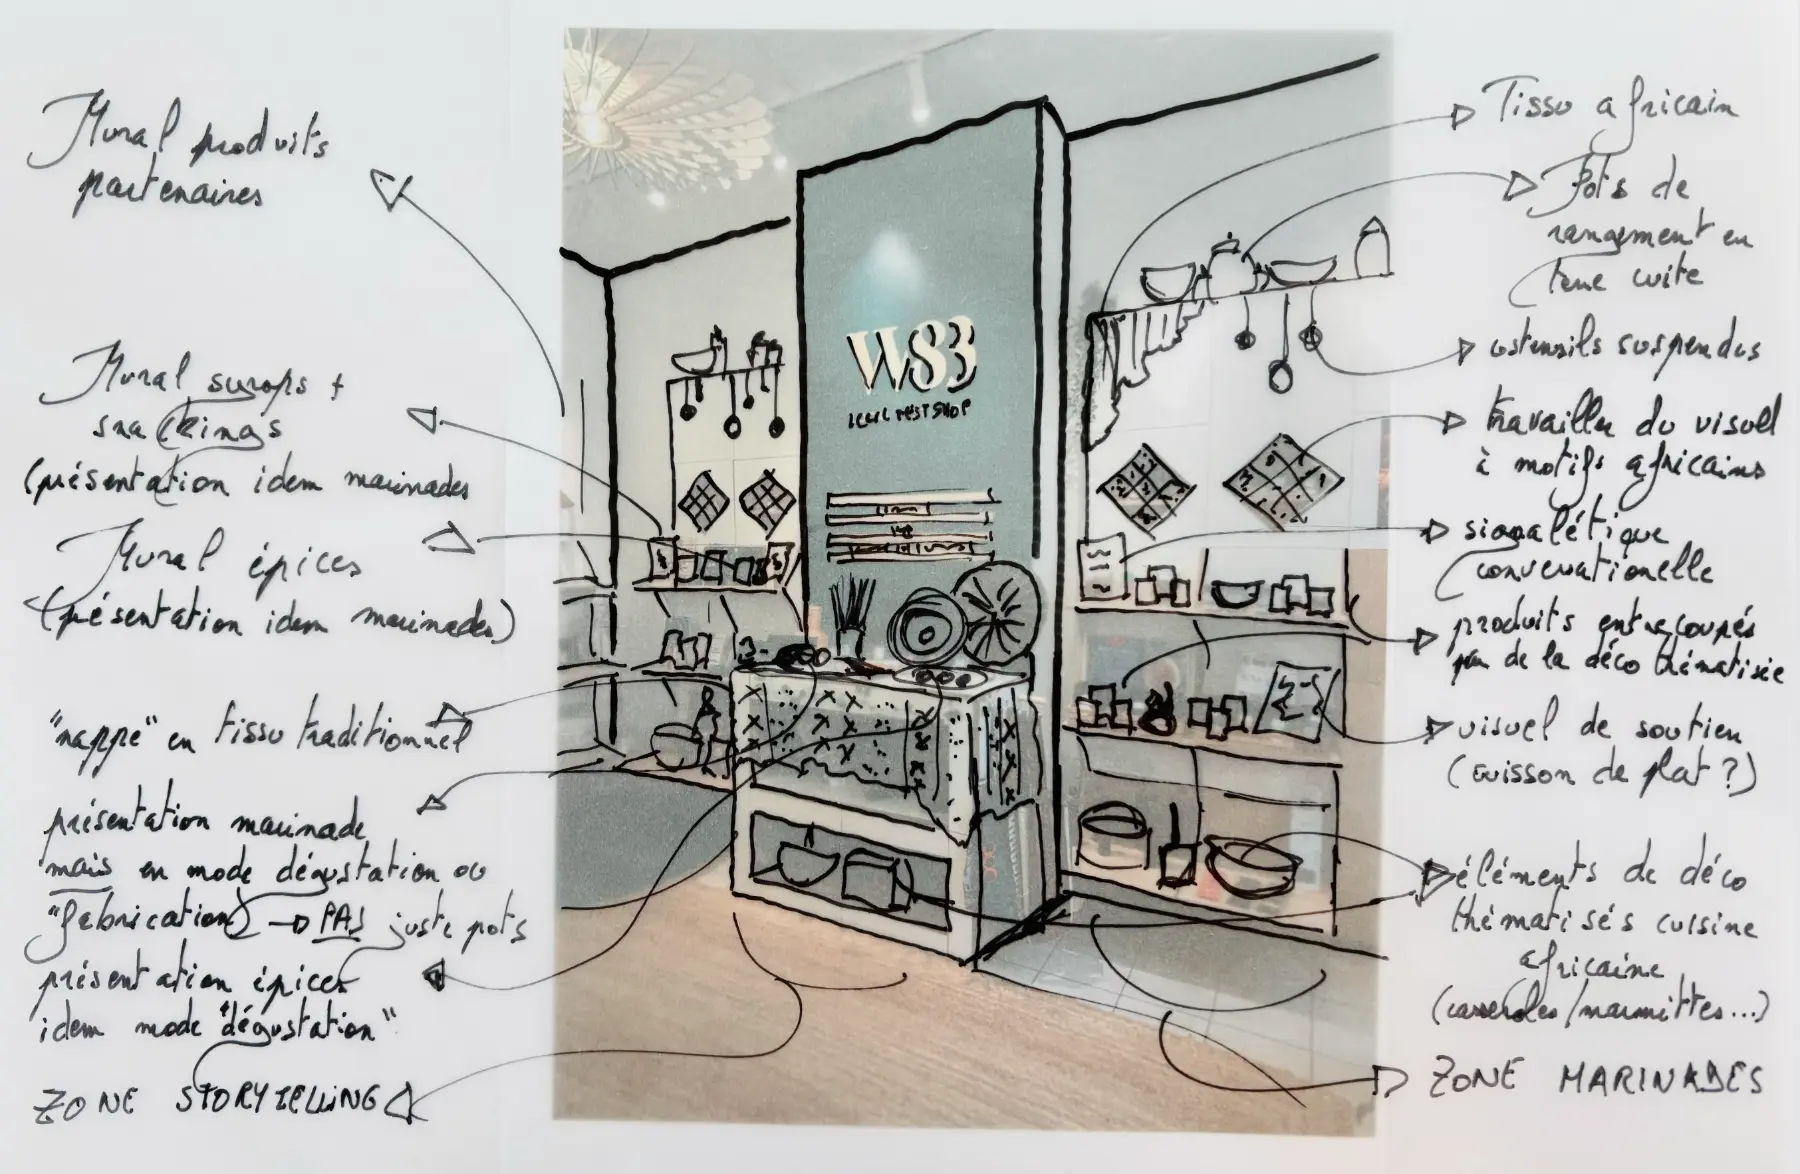 Mural produits
partenaires
Mural syrops +
snackings
(présentation idem marinades
Mural épices
(présentation idem marinades)
"nappe" en tissu traditionnel
présentation marinade
mais en mode dégustation ou
"fabrication" → PAS juste pots
présentation épices
idem mode "dégustation"
ZONE STORYTELLING
W83
Tissu africain
Pots de
rangement en
terre cuite
ustensils suspendus
travailler du visuel
à motifs africains
signalétique
conversationelle
produits entrecoupés
par de la déco thématisée
visuel de soutien
(cuisson de plat ?)
éléments de déco
thématisés cuisine
africaine
(casseroles/marmittes...)
ZONE MARINADES